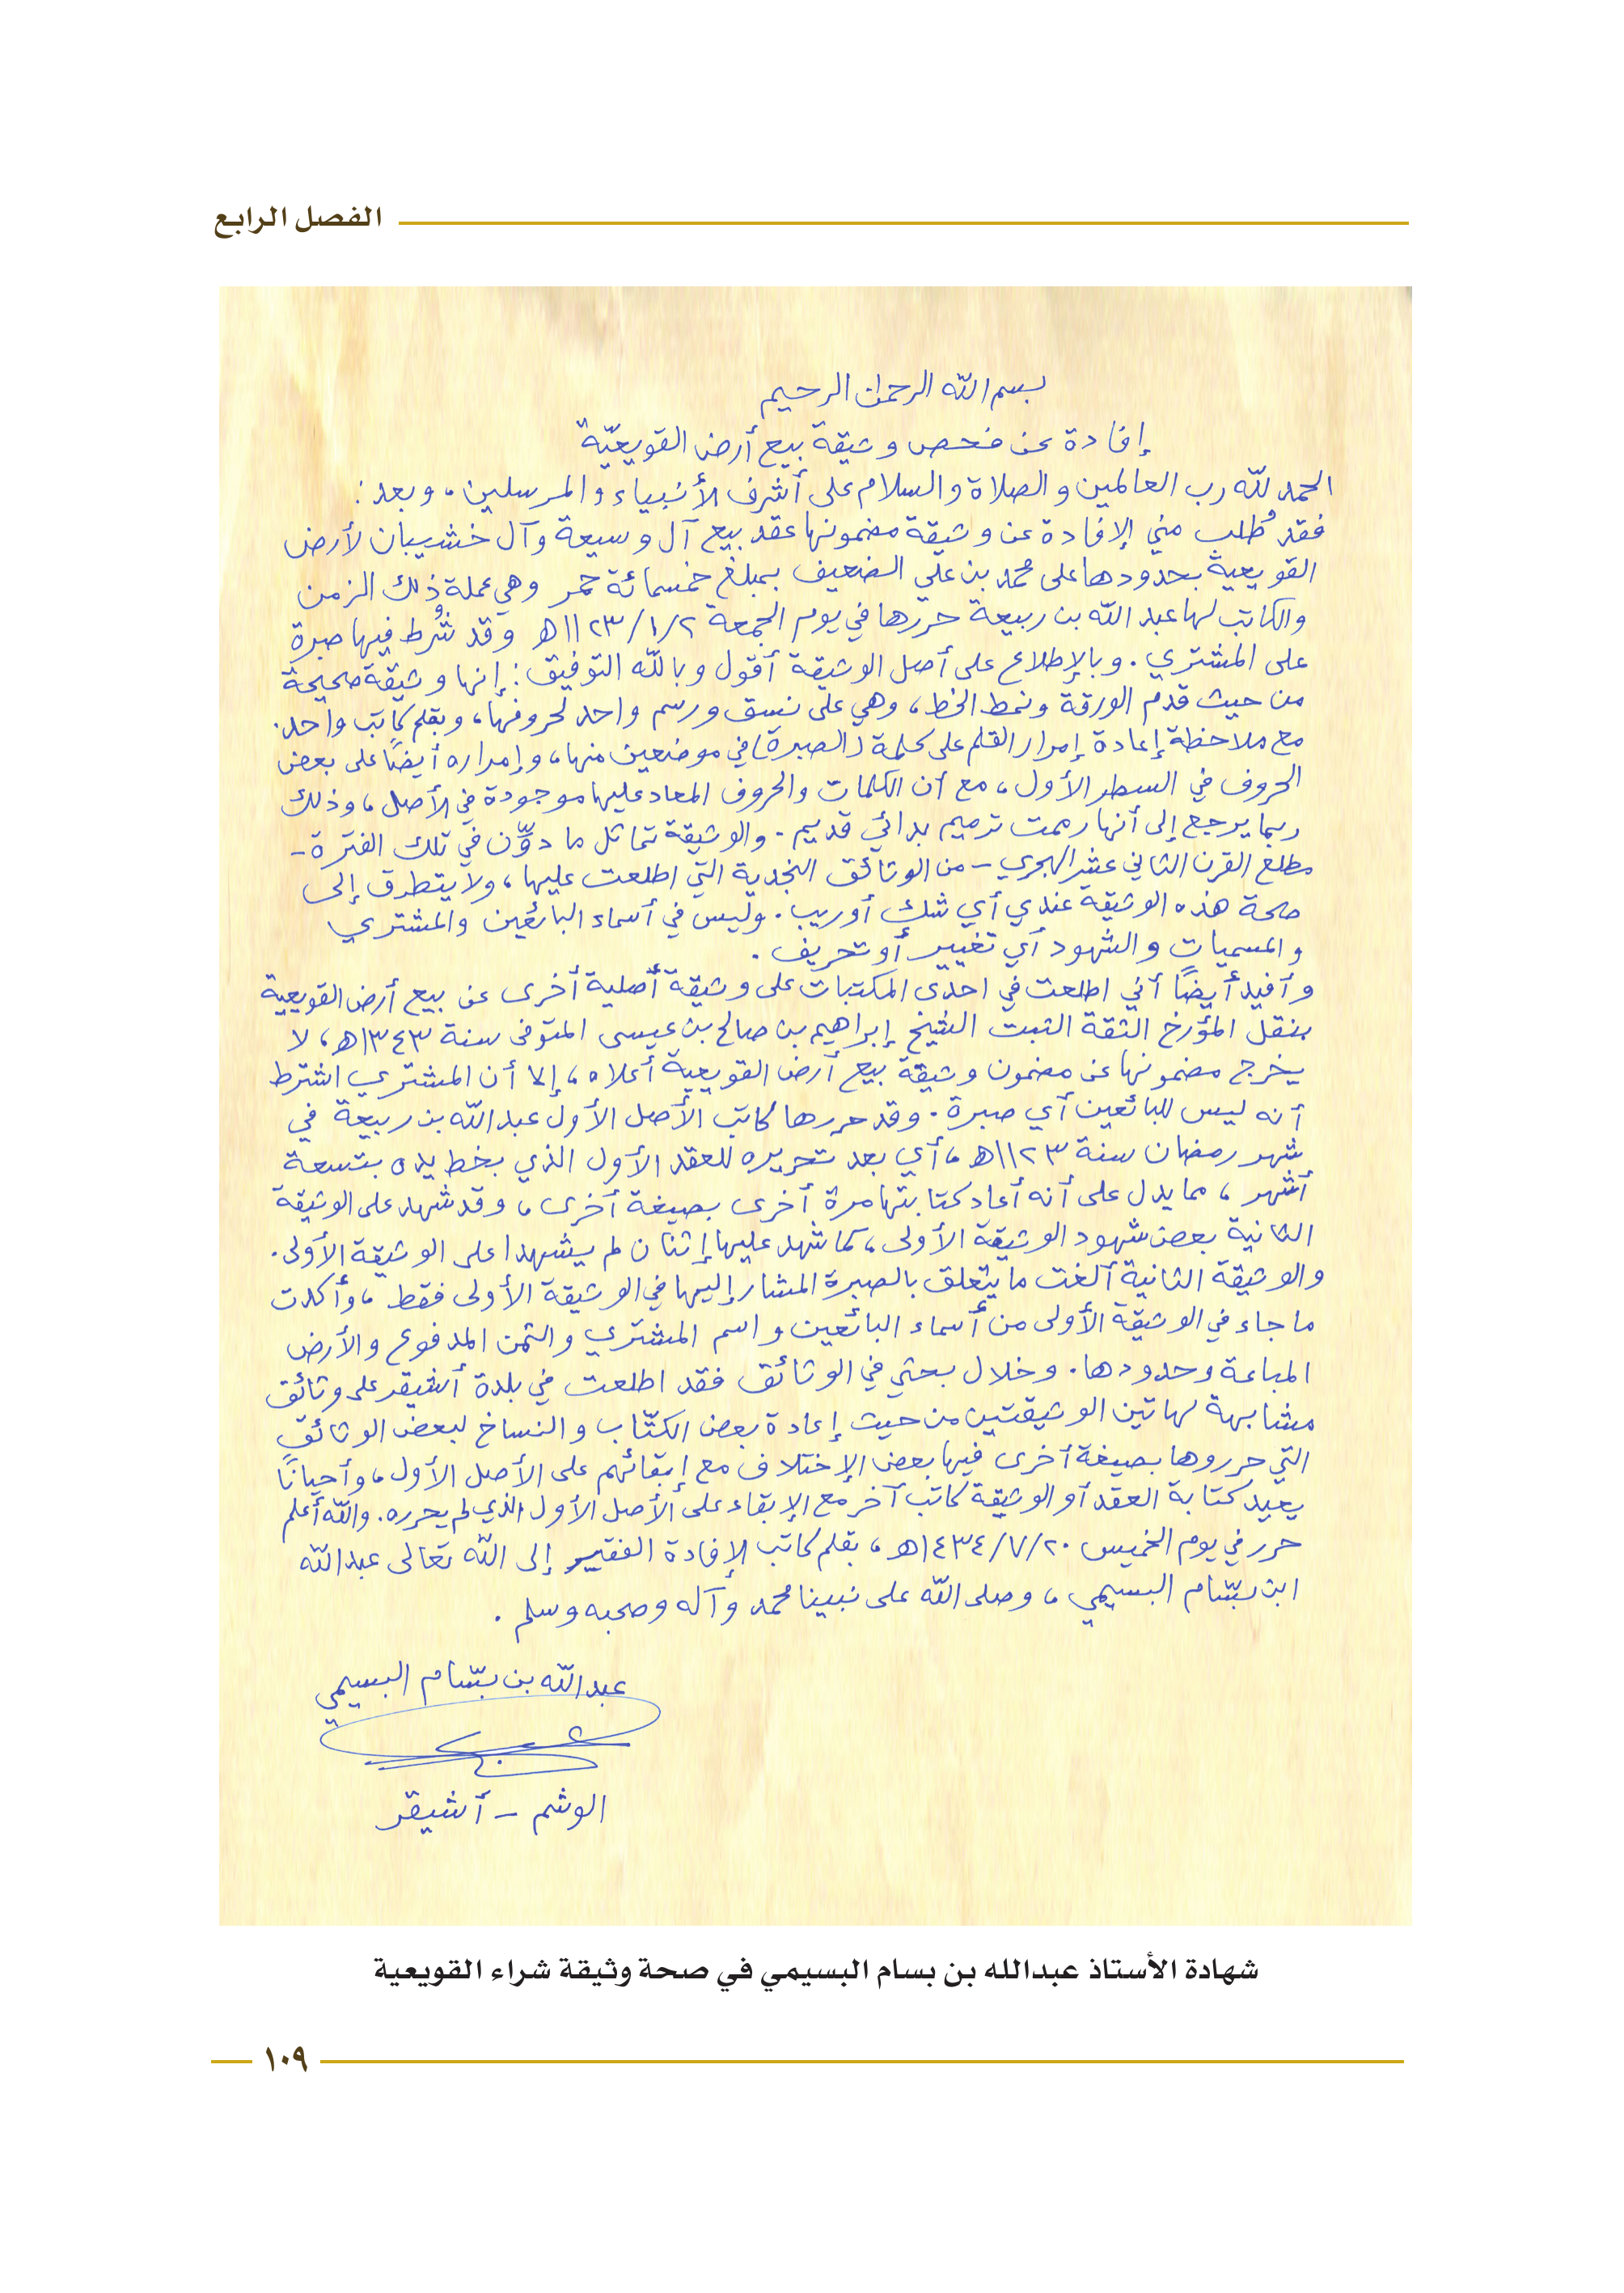 الفصل الرابع
بسم الله الرحمن الرحيم
إفادة عن فحص وثيقة بيع أرض القويعيّة
الحمد لله رب العالمين والصلاة والسلام على أشرف الأنبياء والمرسلين، وبعد:
فقد طُلب مني الإفادة عن وثيقة مضمونها عقد بيع آل وسيعة وآل خشيبان لأرض
القويعية بحدودها على محمد بن علي الضعيف بمبلغ خمسمائة حمر وهي عملة ذلك الزمن
والكاتب لها عبد الله بن ربيعة حررها في يوم الجمعة ١١٢٣/١/٢هـ وقد شُرط فيها صبرة
على المشتري. وبالإطلاع على أصل الوثيقة أقول وبالله التوفيق: إنها وثيقة صحيحة
من حيث قدم الورقة ونمط الخط، وهي على نسق ورسم واحد لحروفها، وبقلم كاتب واحد.
مع ملاحظة إعادة إمرار القلم على كلمة (الصبرة) في موضعين منها، وإمراره أيضًا على بعض
الحروف في السطر الأول، مع أن الكلمات والحروف المعاد عليها موجودة في الأصل، وذلك
ربما يرجع إلى أنها رممت ترميم بدائي قديم. والوثيقة تماثل ما دوِّن في تلك الفترة -
مطلع القرن الثاني عشر الهجري - من الوثائق النجدية التي اطلعت عليها، ولا يتطرق إلى
صحة هذه الوثيقة عندي أي شك أو ريب. وليس في أسماء البائعين والمشتري
والمسميات والشهود أي تغيير أو تحريف.
وأفيد أيضًا أني اطلعت في احدى المكتبات على وثيقة أصلية أخرى عن بيع أرض القويعية
بنقل المؤرخ الثقة الثبت الشيخ إبراهيم بن صالح بن عيسى المتوفى سنة ١٣٤٣هـ، لا
يخرج مضمونها عن مضمون وثيقة بيع أرض القويعية أعلاه، إلا أن المشتري اشترط
أنه ليس للبائعين أي صبرة. وقد حررها كاتب الأصل الأول عبد الله بن ربيعة في
شهر رمضان سنة ١١٢٣هـ، أي بعد تحريره للعقد الأول الذي بخط يده بتسعة
أشهر، مما يدل على أنه أعاد كتابتها مرة أخرى بصيغة أخرى، وقد شهد على الوثيقة
الثانية بعض شهود الوثيقة الأولى، كما شهد عليها إثنان لم يشهدا على الوثيقة الأولى.
والوثيقة الثانية ألغت ما يتعلق بالصبرة المشار إليها في الوثيقة الأولى فقط، وأكدت
ما جاء في الوثيقة الأولى من أسماء البائعين واسم المشتري والثمن المدفوع والأرض
المباعة وحدودها. وخلال بحثي في الوثائق فقد اطلعت في بلدة أشيقر على وثائق
مشابهة لهاتين الوثيقتين من حيث إعادة بعض الكتّاب والنساخ لبعض الوثائق
التي حرروها بصيغة أخرى فيها بعض الإختلاف مع إبقائهم على الأصل الأول، وأحيانًا
يعيد كتابة العقد أو الوثيقة كاتب آخر مع الإبقاء على الأصل الأول الذي لم يحرره. والله أعلم
حرر في يوم الخميس ١٤٣٤/٧/٢٠هـ، بقلم كاتب الإفادة الفقير إلى الله تعالى عبدالله
ابن بسّام البسيمي، وصلى الله على نبينا محمد وآله وصحبه وسلم.
عبدالله بن بسّام البسيمي
الوشم - أشيقر
شهادة الأستاذ عبدالله بن بسام البسيمي في صحة وثيقة شراء القويعية
١٠٩